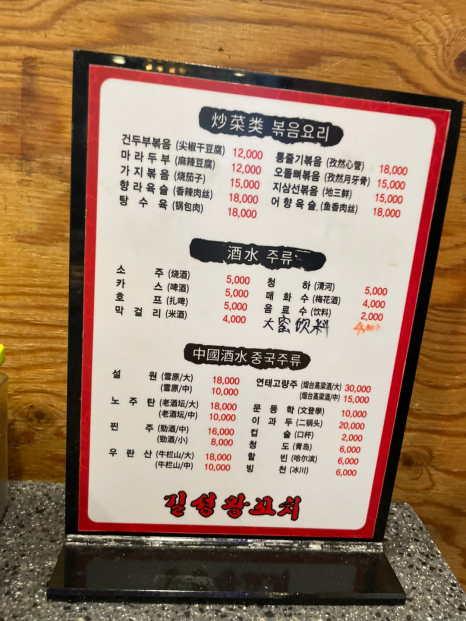 炒菜类 볶음요리
건두부볶음 (尖椒干豆腐) 12,000
마라두부 (麻辣豆腐) 12,000
가지볶음 (烧茄子) 15,000
향라육슬 (香辣肉丝) 18,000
탕수육 (锅包肉) 18,000
통줄기볶음 (孜然心管) 18,000
오돌뼈볶음 (孜然月牙骨) 15,000
지삼선볶음 (地三鲜) 15,000
어향육슬 (鱼香肉丝) 18,000
酒水 주류
소주 (烧酒) 5,000
카스 (啤酒) 5,000
호프 (扎啤) 5,000
막걸리 (米酒) 4,000
청하 (清河) 5,000
매화수 (梅花酒) 4,000
음료수 (饮料) 2,000
大 饮料
中國酒水 중국주류
설원 (雪原/大) 18,000
(雪原/中) 10,000
노주탄 (老酒坛/大) 18,000
(老酒坛/中) 10,000
찐주 (劲酒/中) 16,000
(劲酒/小) 8,000
우란산 (牛栏山/大) 18,000
(牛栏山/中) 10,000
연태고량주 (烟台高粱酒/大) 30,000
(烟台高粱酒/中) 15,000
문등학 (文登學) 10,000
이과두 (二锅头) 20,000
컵술 (口杯) 2,000
청도 (青岛) 6,000
할빈 (哈尔滨) 6,000
빙천 (冰川) 6,000
길성왕꼬치